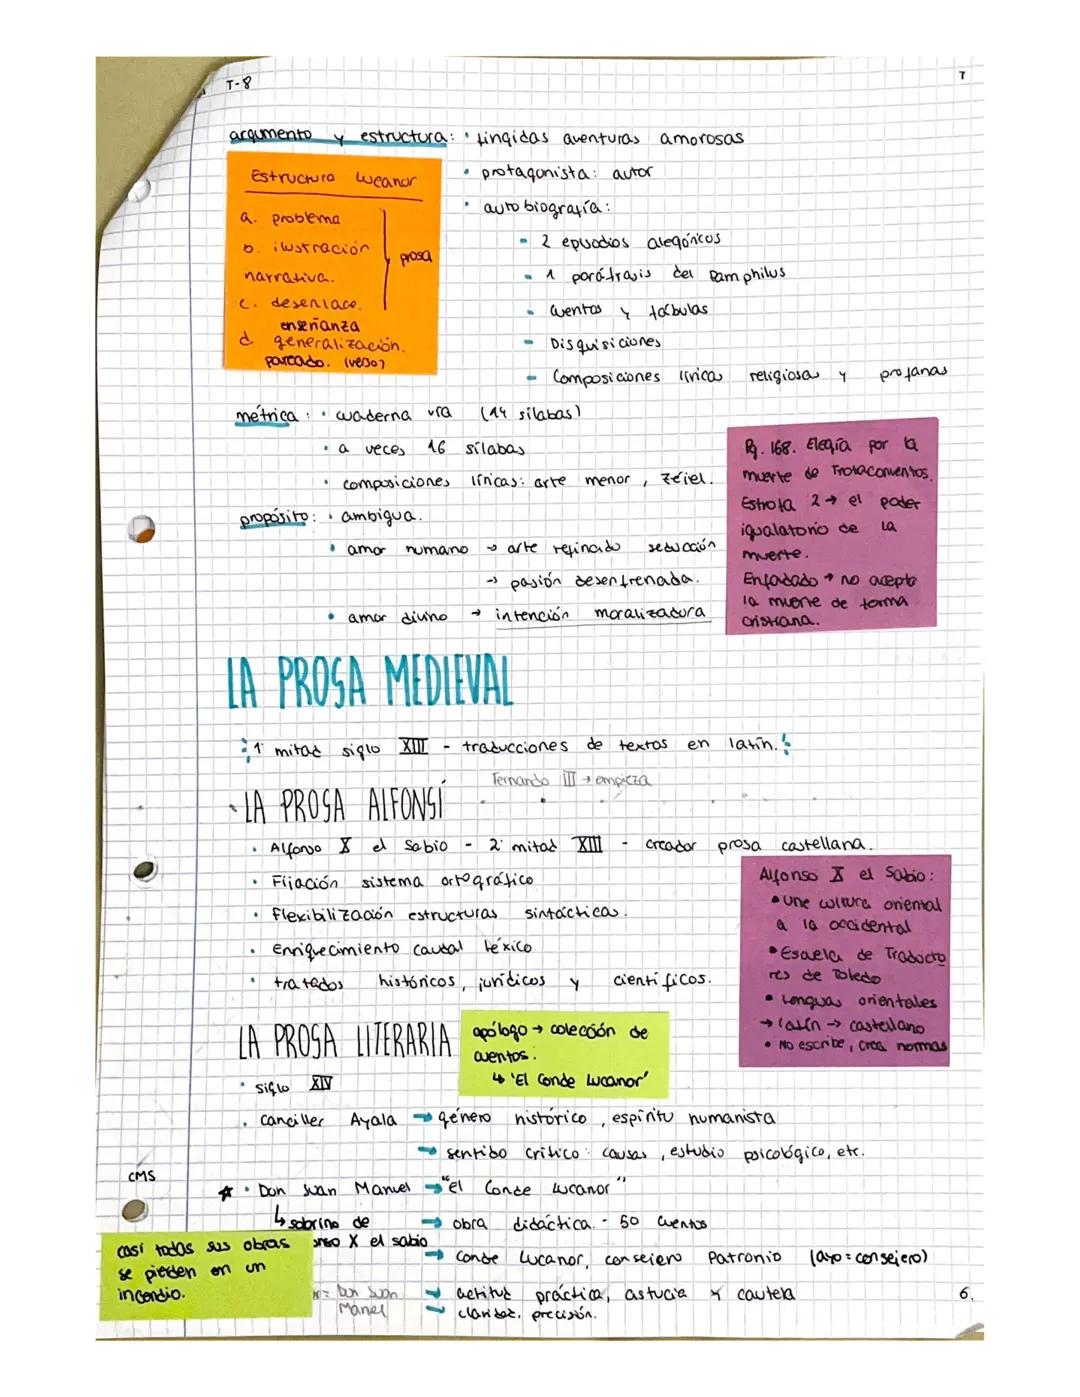 T-8
7
argumento y estructura: • fingidas aventuras amorosas
• protagonista: autor
• autobiografía:
- 2 episodios alegóricos
- 1 paráfrasis del Pamphilus
- cuentos y fábulas
- Disquisiciones
- Composiciones líricas religiosas y profanas
Estructura Lucanor
a. problema
b. ilustración
narrativa.
c. desenlace.
enseñanza
d generalización.
pareado. (verso)
prosa
métrica: • cuaderna vía (14 sílabas)
• a veces 16 sílabas
• composiciones líricas: arte menor, zéjel.
propósito: • ambigua.
• amor humano → arte refinado seducción
→ pasión desenfrenada.
• amor divino → intención moralizadora
Pg. 168. Elegía por la
muerte de Trotaconventos.
Estrofa 2 → el poder
igualatorio de la
muerte.
Enfadado → no acepta
la muerte de forma
cristiana.
LA PROSA MEDIEVAL
1ª mitad siglo XIII - traducciones de textos en latín.
Fernando III → empieza
• LA PROSA ALFONSÍ
• Alfonso X el Sabio - 2ª mitad XIII - creador prosa castellana.
• Fijación sistema ortográfico
• Flexibilización estructuras sintácticas.
• Enriquecimiento caudal léxico
• tratados históricos, jurídicos y científicos.
Alfonso X el Sabio:
• Une cultura oriental
a la occidental
• Escuela de Traducto
res de Toledo
• Lenguas orientales
→ latín → castellano
• No escribe, crea normas
LA PROSA LITERARIA
apólogo → colección de
cuentos.
↳ 'El Conde Lucanor'
• siglo XIV
• Canciller Ayala → género histórico, espíritu humanista
→ sentido crítico: causas, estudio psicológico, etc.
CMS
☆ • Don Juan Manuel → "el Conde Lucanor"
↳ sobrino de → obra didáctica. - 50 cuentos
onso X el sabio
→ Conde Lucanor, consejero Patronio (ayo = consejero)
casi todas sus obras
se pierden en un
incendio.
= Don Juan
Manuel
→ actitud práctica, astucia y cautela
→ claridad, precisión.
6.